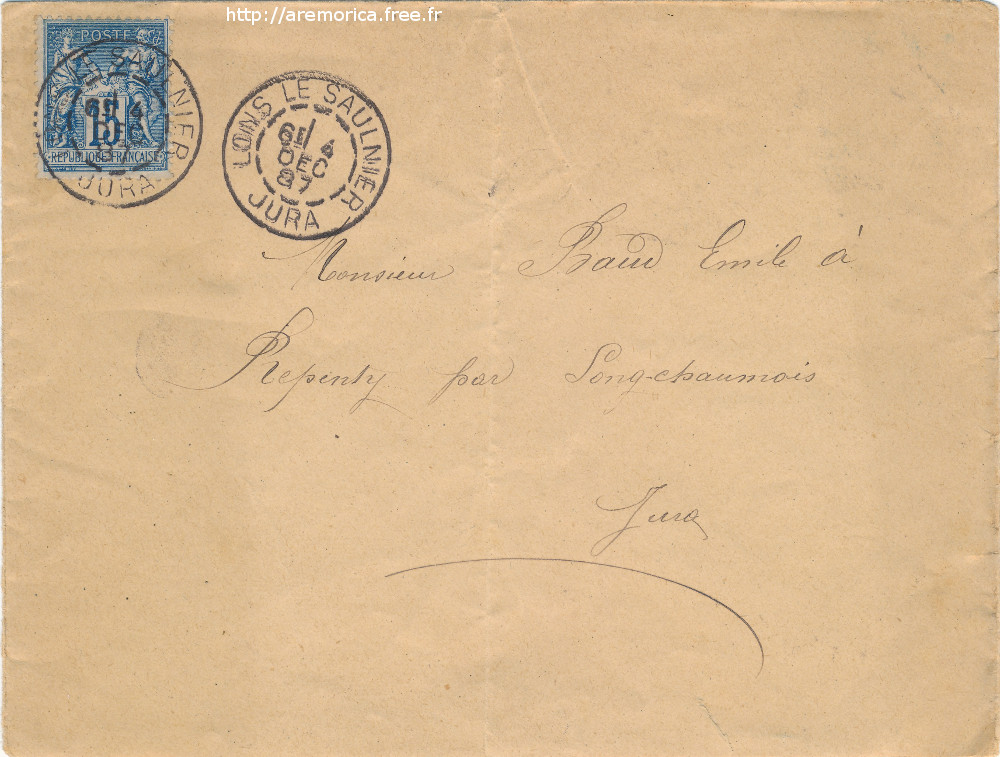 http://aremorica.free.fr
POSTE
15
REPUBLIQUE FRANCAISE
LE SAULNIER
JURA
LONS LE SAULNIER
6E/ 4
DEC
87
JURA
Monsieur Baud Emile à
Repenty par Longchaumois
Jura